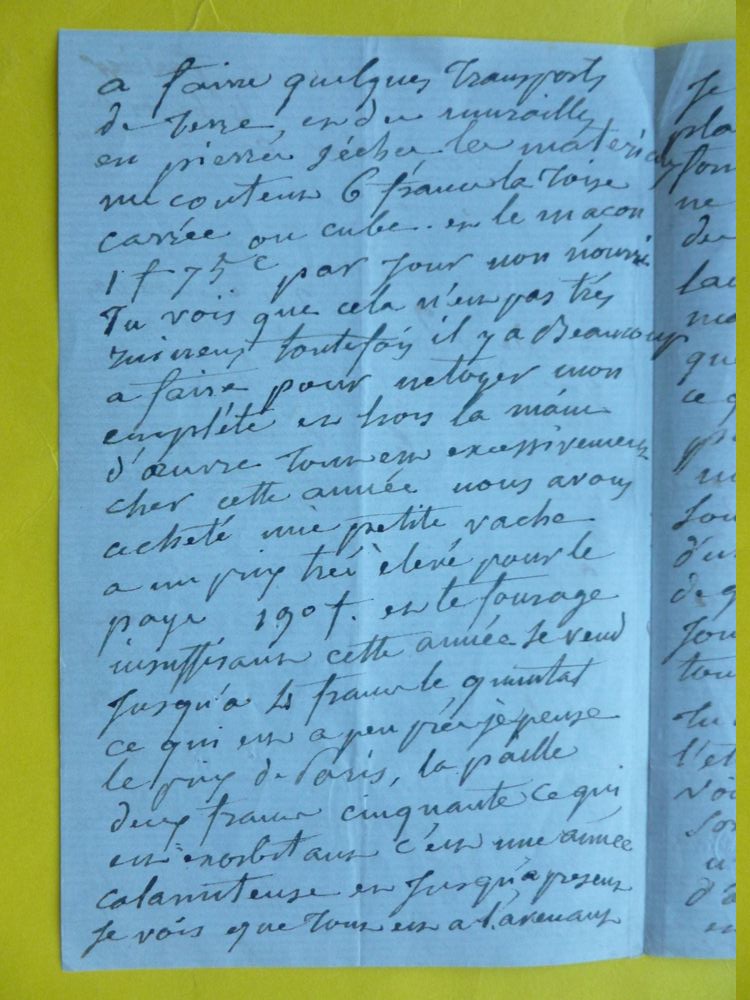 a faire quelques transports
de terre, et des murailles
en pierres sèches les matériaux
me coutent 6 francs la Toise
carrée ou cube. et le maçon
1 f 75 c par jour non nourri
Tu vois que cela n'est pas très
ruineux toutefois il y a Beaucoup
a faire pour netoyer mon
emplété et hors la main
d'œuvre tout est excessivement
cher cette année nous avons
acheté une petite vache
a un prix très élevé pour le
pays 190 f. et le fourage
insuffisant cette année se vend
Jusqu'a 4 francs le quintal
ce qui est a peu près je pense
le prix de Paris, la paille
deux francs cinquante ce qui
est exorbitant c'est une année
calamiteuse et Jusqu'a present
Je vois que tout est a l'avenant
Je
pla
ne
de
que
ce q
d'un
de q
tou
Tu
l'ét